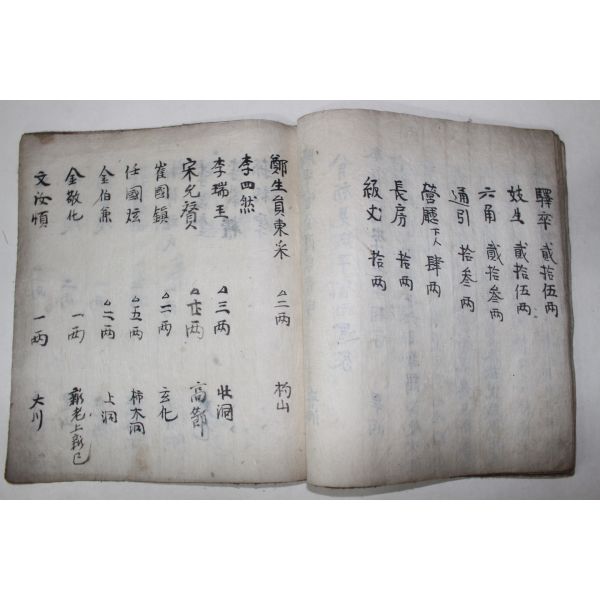 驛卒 貳拾伍兩
妓生 貳拾伍兩
六角 貳拾叁兩
通引 拾叁兩
營廳下人 肆兩
長房 拾兩
級丈 拾兩
鄭生員東采 二兩 杓山
李四然
李瑞玉 三兩 壯洞
宋允賛 卄兩 高部
崔國鎭 二兩 玄化
任國玹 五兩 柿木洞
金伯兼 二兩 上洞
金敬化 一兩
文汝順 一兩 大川